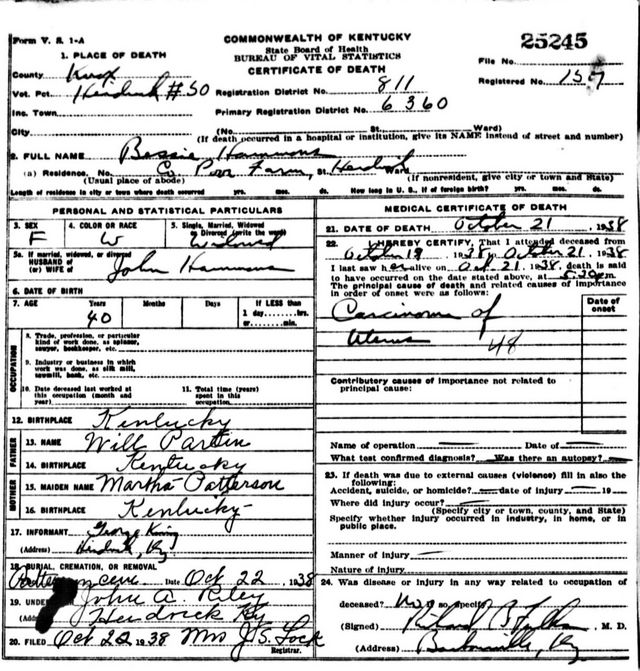 Form V. S. 1-A
COMMONWEALTH OF KENTUCKY
State Board of Health
BUREAU OF VITAL STATISTICS
CERTIFICATE OF DEATH
25245
File No.
Registered No. 157
1. PLACE OF DEATH
County Knox
Vot. Pct. #50
Registration District No. 811
Inc. Town
Primary Registration District No. 6360
City (No. St. Ward)
(If death occurred in a hospital or institution, give its NAME instead of street and number)
2. FULL NAME Bessie Hammons
(a) Residence, No. Co Poor Farm, St. Ward
(Usual place of abode) (If nonresident, give city or town and State)
Length of residence in city or town where death occurred yrs. mos. ds. How long in U. S., if of foreign birth? yrs. mos. ds.
PERSONAL AND STATISTICAL PARTICULARS
3. SEX
F
4. COLOR OR RACE
W
5. Single, Married, Widowed or Divorced (write the word)
Widowed
5a. If married, widowed, or divorced
HUSBAND of
(or) WIFE of John Hammons
6. DATE OF BIRTH
7. AGE Years Months Days If LESS than
40
1 day......hrs.
or......min.
OCCUPATION
8. Trade, profession, or particular
kind of work done, as spinner,
sawyer, bookkeeper, etc.
9. Industry or business in which
work was done, as silk mill,
sawmill, bank, etc.
10. Date deceased last worked at
this occupation (month and
year)
11. Total time (years)
spent in this
occupation
12. BIRTHPLACE Kentucky
FATHER
13. NAME Will Partin
14. BIRTHPLACE Kentucky
MOTHER
15. MAIDEN NAME Martha Patterson
16. BIRTHPLACE Kentucky
17. INFORMANT George King
(Address) Ky
18. BURIAL, CREMATION, OR REMOVAL
Date Oct 22 1938
19. John A. Riley
Hendrick Ky
20. FILED Oct 22 1938 Mrs J. S. Lock
Registrar.
MEDICAL CERTIFICATE OF DEATH
21. DATE OF DEATH October 21 1938
22. I HEREBY CERTIFY, That I attended deceased from
October 19 1938 to October 21 1938
I last saw her alive on Oct 21 1938, death is said
to have occurred on the date stated above, at 5:30 pm.
The principal cause of death and related causes of importance
in order of onset were as follows:
Date of
onset
Carcinoma of
Uterus 48
Contributory causes of importance not related to
principal cause:
Name of operation Date of
What test confirmed diagnosis? Was there an autopsy?
23. If death was due to external causes (violence) fill in also the
following:
Accident, suicide, or homicide? date of injury 19
Where did injury occur?
(Specify city or town, county, and State)
Specify whether injury occurred in industry, in home, or in
public place.
Manner of injury
Nature of injury
24. Was disease or injury in any way related to occupation of
deceased? No so specify
(Signed) M. D.
(Address) Barbourville, Ky